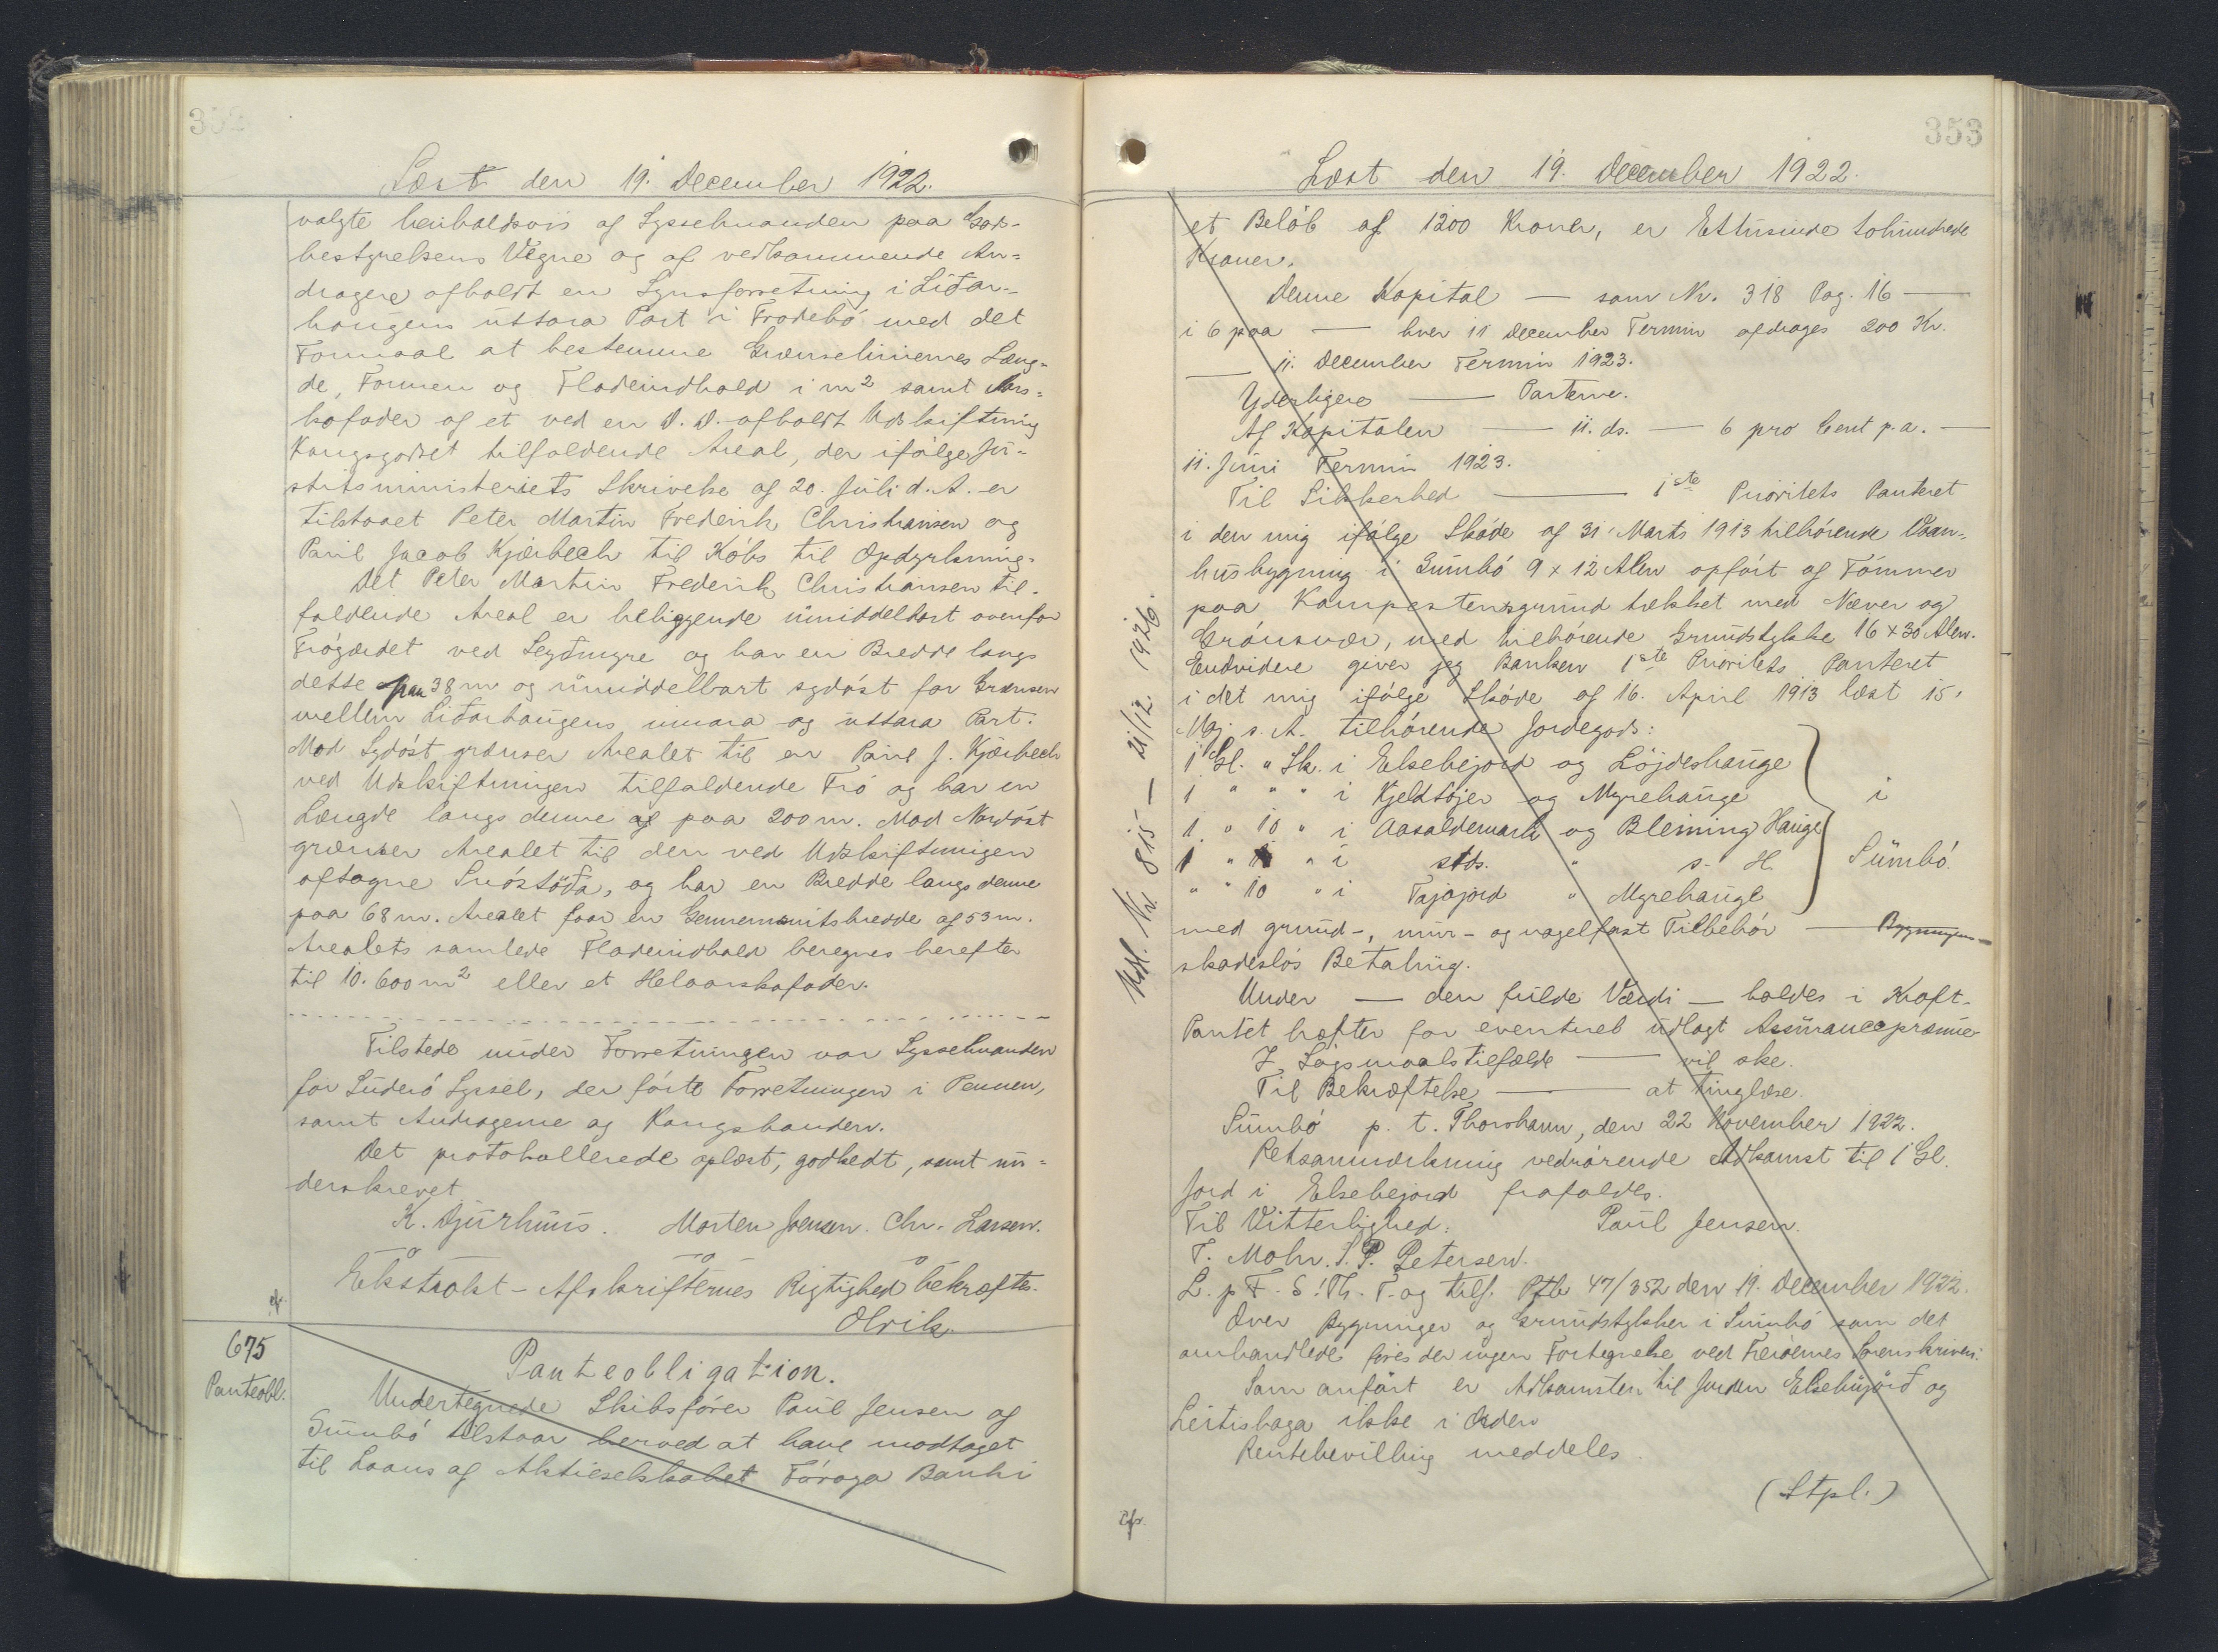 352
Læst den 19. December 1922.
valgte henholdsvis af Sysselmanden paa Gods-
bestyrelsens Vegne og af vedkommende An-
dragere afholdt en Synsforretning i Lidar-
haugens uttara Part i Frodebó med det
Formaal at bestemme Grænseliniernes Læng-
de, Formen og Fladeindhold i m² samt Aars-
kofoder af et ved en D. D. afholdt Udskiftning
Kongsgodset tilfaldende Areal, der ifølge Ju-
stitsministeriets Skrivelse af 20. Juli d. A. er
tilstaaet Peter Martin Frederik Christiansen og
Paul Jacob Kjærbech til Købs til Opdyrkning.
Det Peter Martin Frederik Christiansen til-
faldende Areal er beliggende umiddelbart ovenfor
Trógærdet ved Seydmyre og har en Bredde langs
dette paa 38 m og umiddelbart sydóst for Grænsen
mellem Lidarhaugens innara og uttara Part.
Mod Sydóst grænser Arealet til en Paul J. Kjærbech
ved Udskiftningen tilfaldende Tró og har en
Længde langs denne af paa 200 m. Mod Nordóst
grænser Arealet til den ved Udskiftningen
aftagne Snóstöda, og har en Bredde langs denne
paa 68 m. Arealet faar en Gennemsnitsbredde af 53 m.
Arealets samlede Fladeindhold beregnes herefter
til 10.600 m² eller et Helaarskofoder.
Tilstede under Forretningen var Sysselmanden
for Suderó Syssel, der fórte Forretningen i Pennen,
samt Andragerne og Kongsbonden.
Det protokollerede oplæst, godkedt, samt un-
derskrevet
K. Djurhuus. Morten Joensen. Chr. Larsen.
Ekstrakt-Afskrifternes Rigtighed bekræftes.
Olrik.
675
Panteobl.
Panteobligation.
Undertegnede Skibsfører Paul Jensen af
Sumbó tilstaar herved at have modtaget
til Laans af Aktieselskabet Fóroya Banki
353
Læst den 19. December 1922.
et Belób af 1200 Kroner, er Ettusinde tohundrede
Kroner.
Denne Kapital — som Nr. 318 Pag. 16 —
i 6 paa — hver 11 December Termin afdrages 200 Kr.
— 11. December Termin 1923.
Yderligere — Parterne.
Af Kapitalen — 11. ds. — 6 pro Cent p.a. —
11. Juni Termin 1923.
Til Sikkerhed — 1ste Prioritets Panteret
i den mig ifólge Skóde af 31. Marts 1913 tilhórende Vaan-
husbygning i Sumbó 9 x 12 Alen opfórt af Tómmer
paa Kampestensgrund tækket med Næver og
Grónsvær, med tilhórende Grundstykke 16 x 30 Alen.
Endvidere giver jeg Banken 1ste Prioritets Panteret
i det mig ifólge Skóde af 16. April 1913 læst 15.
Maj s. A. tilhórende Jordegods:
1 Gl. " Sk. i Elsebejord og Löjdeshauge
1 " " " i Kjeldtöjer og Myrehauge
1 " 10 " i Aasaldemark og Bleining Hauge
1 " " i stds. " s. H.
" " 10 " i Tajajord " Myrehauge
i
Sumbó.
med grund-, mur- og nagelfast Tilbehór — Bygningen —
skadeslós Betaling.
Under — den fulde Værdi — holdes i Kraft.
Pantet hæfter for eventuel udlagt Assurancepræmie
I Søgsmaalstilfælde — vil ske.
Til Bekræftelse — at tinglæse.
Sumbó p. t. Thorshavn, den 22 November 1922.
Retsanmærkning vedrórende Adkomst til 1 Gl.
Jord i Elsebejord frafaldes.
Til Vitterlighed: Paul Jensen.
T. Mohr. S. P. Petersen.
L. p F. S! Th. T. og tilf. Ptb 47/352 den 19. December 1922.
Over Bygninger og Grundstykker i Sumbó som det
omhandlede føres der ingen Fortegnelse ved Færóernes Sorenskriveri.
Som anfórt er Adkomsten til Jorden Elsebujörd og
Leitishaga ikke i Orden
Rentebevilling meddeles.
(Stpl.)
Udl. Nr. 815 — 21/12 1926.